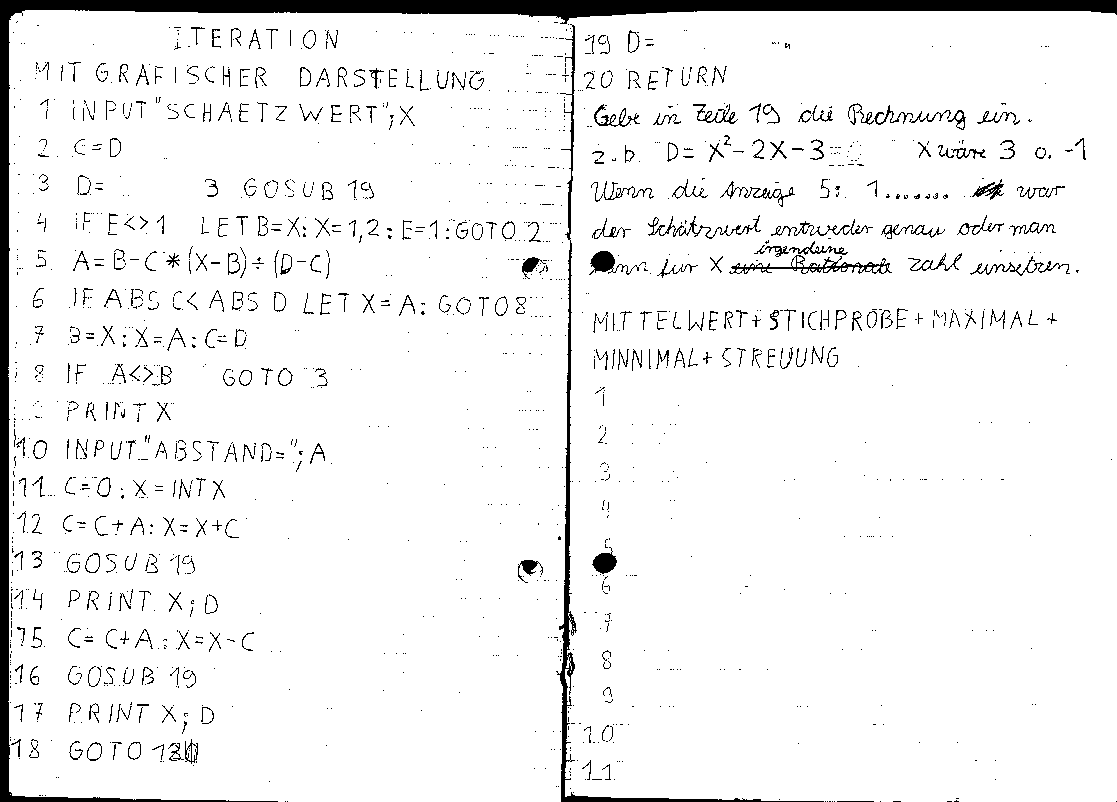 ITERATION
MIT GRAFISCHER DARSTELLUNG
1 INPUT"SCHAETZWERT";X
2 C=D
3 D= 3 GOSUB 19
4 IF E<>1 LET B=X:X=1,2:E=1:GOTO 2
5 A=B-C*(X-B)÷(D-C)
6 IF ABS C<ABS D LET X=A: GOTO 8
7 B=X:X=A:C=D
8 IF A<>B GOTO 3
PRINT X
10 INPUT"ABSTAND=";A
11 C=0:X=INT X
12 C=C+A:X=X+C
13 GOSUB 19
14 PRINT X;D
15 C=C+A:X=X-C
16 GOSUB 19
17 PRINT X;D
18 GOTO
19 D=
20 RETURN
Gebe in Zeile 19 die Rechnung ein.
z.b. D= X²-2X-3= X wäre 3 o. -1
Wenn die Anzeige 5: 1....... war
der Schätzwert entweder genau oder man
für X irgendeine zahl einsetzen.
MITTELWERT+STICHPROBE+MAXIMAL+
MINNIMAL+STREUUNG
1
2
3
4
5
6
7
8
9
10
11